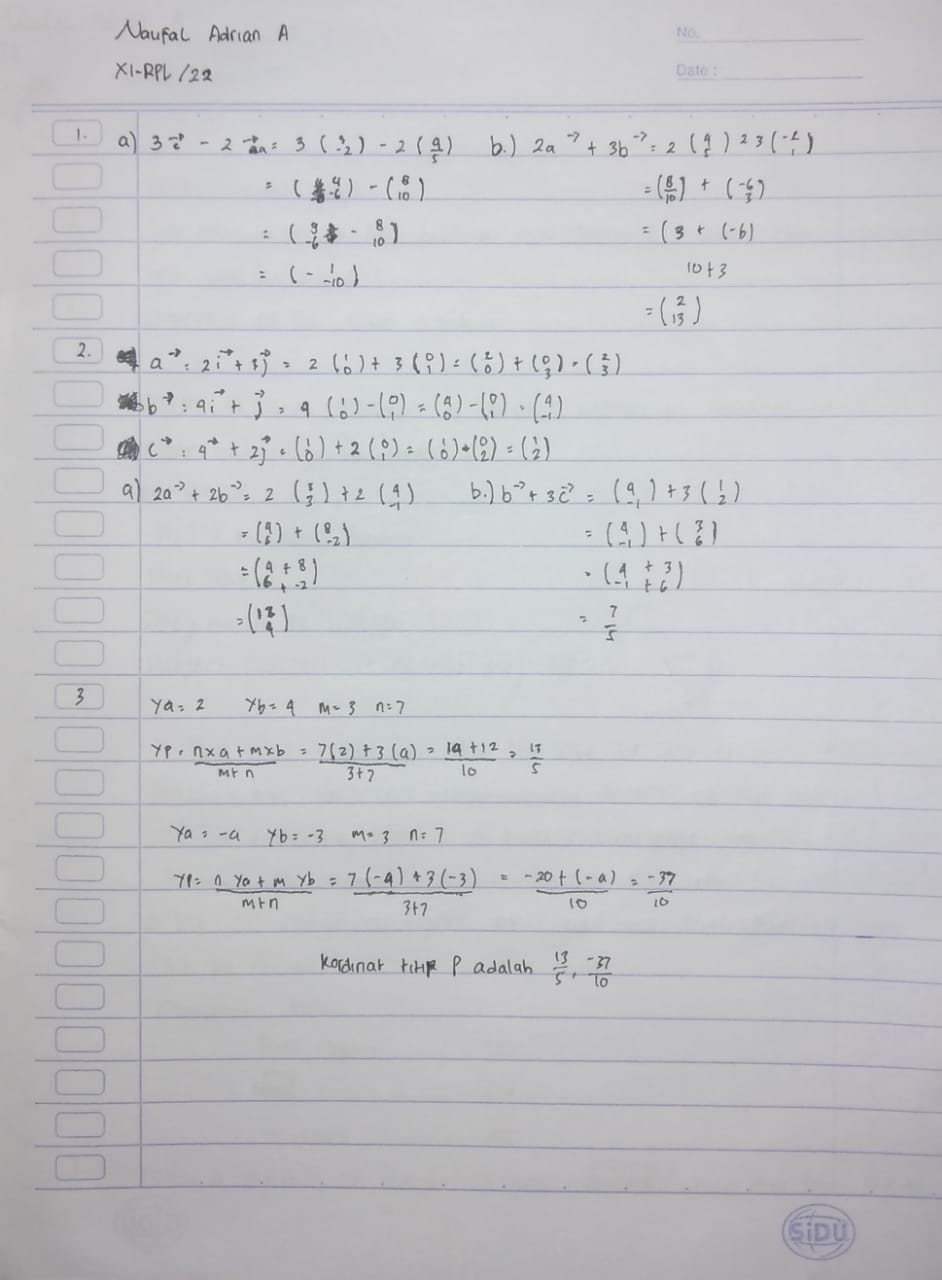 Naufal Adrian A
No.
XI-RPL / 22
Date :
1. a) 3c→ - 2 a→ = 3 (3 -2) - 2 (4 5)
= ( 4 -6) - (8 10)
= ( 9 -6 - 8 10)
= (- 1 -10)
b.) 2a→ + 3b→ = 2 (4 5) 2 3 (-2 1)
= (8 10) + (-6 3)
= (8 + (-6)
10 + 3
= (2 13)
2. a→ : 2i→ + 3j→ = 2 (1 0) + 3 (0 1) = (2 0) + (0 3) = (2 3)
b→ : 4i→ + j→ = 4 (1 0) - (0 1) = (4 0) - (0 1) = (4 -1)
c→ : 4→ + 2j→ = (1 0) + 2 (0 1) = (1 0) + (0 2) = (1 2)
a) 2a→ + 2b→ = 2 (2 3) + 2 (4 -1)
= (4 6) + (8 -2)
= (4 + 8 6 + -2)
= (12 4)
b.) b→ + 3c→ = (4 -1) + 3 (1 2)
= (4 -1) + (3 6)
= (4 + 3 -1 + 6)
= 7/5
3 Xa = 2 Xb = 4 m = 3 n = 7
XP = nxa + mxb / m+n = 7(2) + 3(4) / 3+7 = 14 + 12 / 10 = 13/5
Ya = -4 Yb = -3 m = 3 n = 7
YP = n Ya + m Yb / m+n = 7(-4) + 3(-3) / 3+7 = -20 + (-9) / 10 = -37/10
Kordinat titik P adalah 13/5, -37/10
SiDU